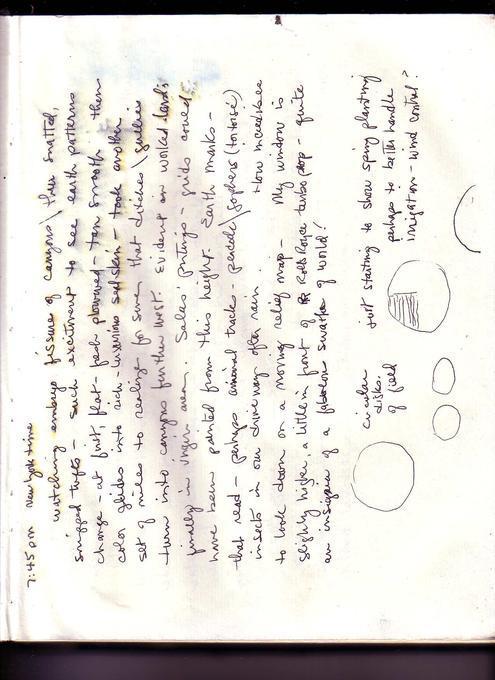 7:45 pm New York time
watching embryo fissure of canyons \ then matted,
snipped tufts - such excitement to see earth patterns
change - at first, flat - fresh plowed - tan smooth then
color glides into rich - luxurious sealskin - took another
set of miles to realize for sure that ditches \ gullies
turn into canyons further west. Evident on worked land;
finally in virgin area. Salas' paintings - grids could
have been painted from this height. Earth marks -
that read - perhaps animal tracks - \ gophers (tortoise)
insects in our driveway after rain. How incredible
to look down on a moving relief map - My window is
slightly higher, a little in front of Rolls Royce turbo prop - quite
an insignia of a swatch of world!
circular
disks
of field
just starting to show spring planting
perhaps to better handle
irrigation - wind control?